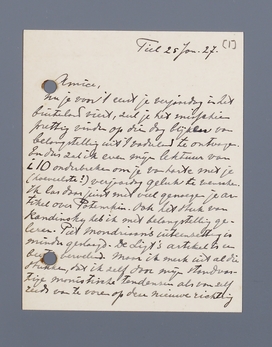 Tiel 25 Jan. 27. (1)
Amice,
Nu je voor 't eerst je verjaardag in het
buitenland viert, zal je het misschien
prettig vinden op die dag blijken van
belangstelling uit 't vaderland te ontvangen.
En dus zal ik even mijn lektuur van
i 10 onderbreken om je van harte met je
verjaardag geluk te wenschen.
Ik las daar juist met veel genoegen je ar-
tikel over Potemkin. Ook het stuk van
Kandinsky heb ik met belangstelling ge-
lezen. Piet Mondriaan's uiteenzetting is
minder geslaagd. De Ligt's artikel is en
Maar ik merk uit al die
stukken, dat ik zelf door mijn
tige monistische tendenzen als van zelf
reeds van te voren op den nieuwe richting